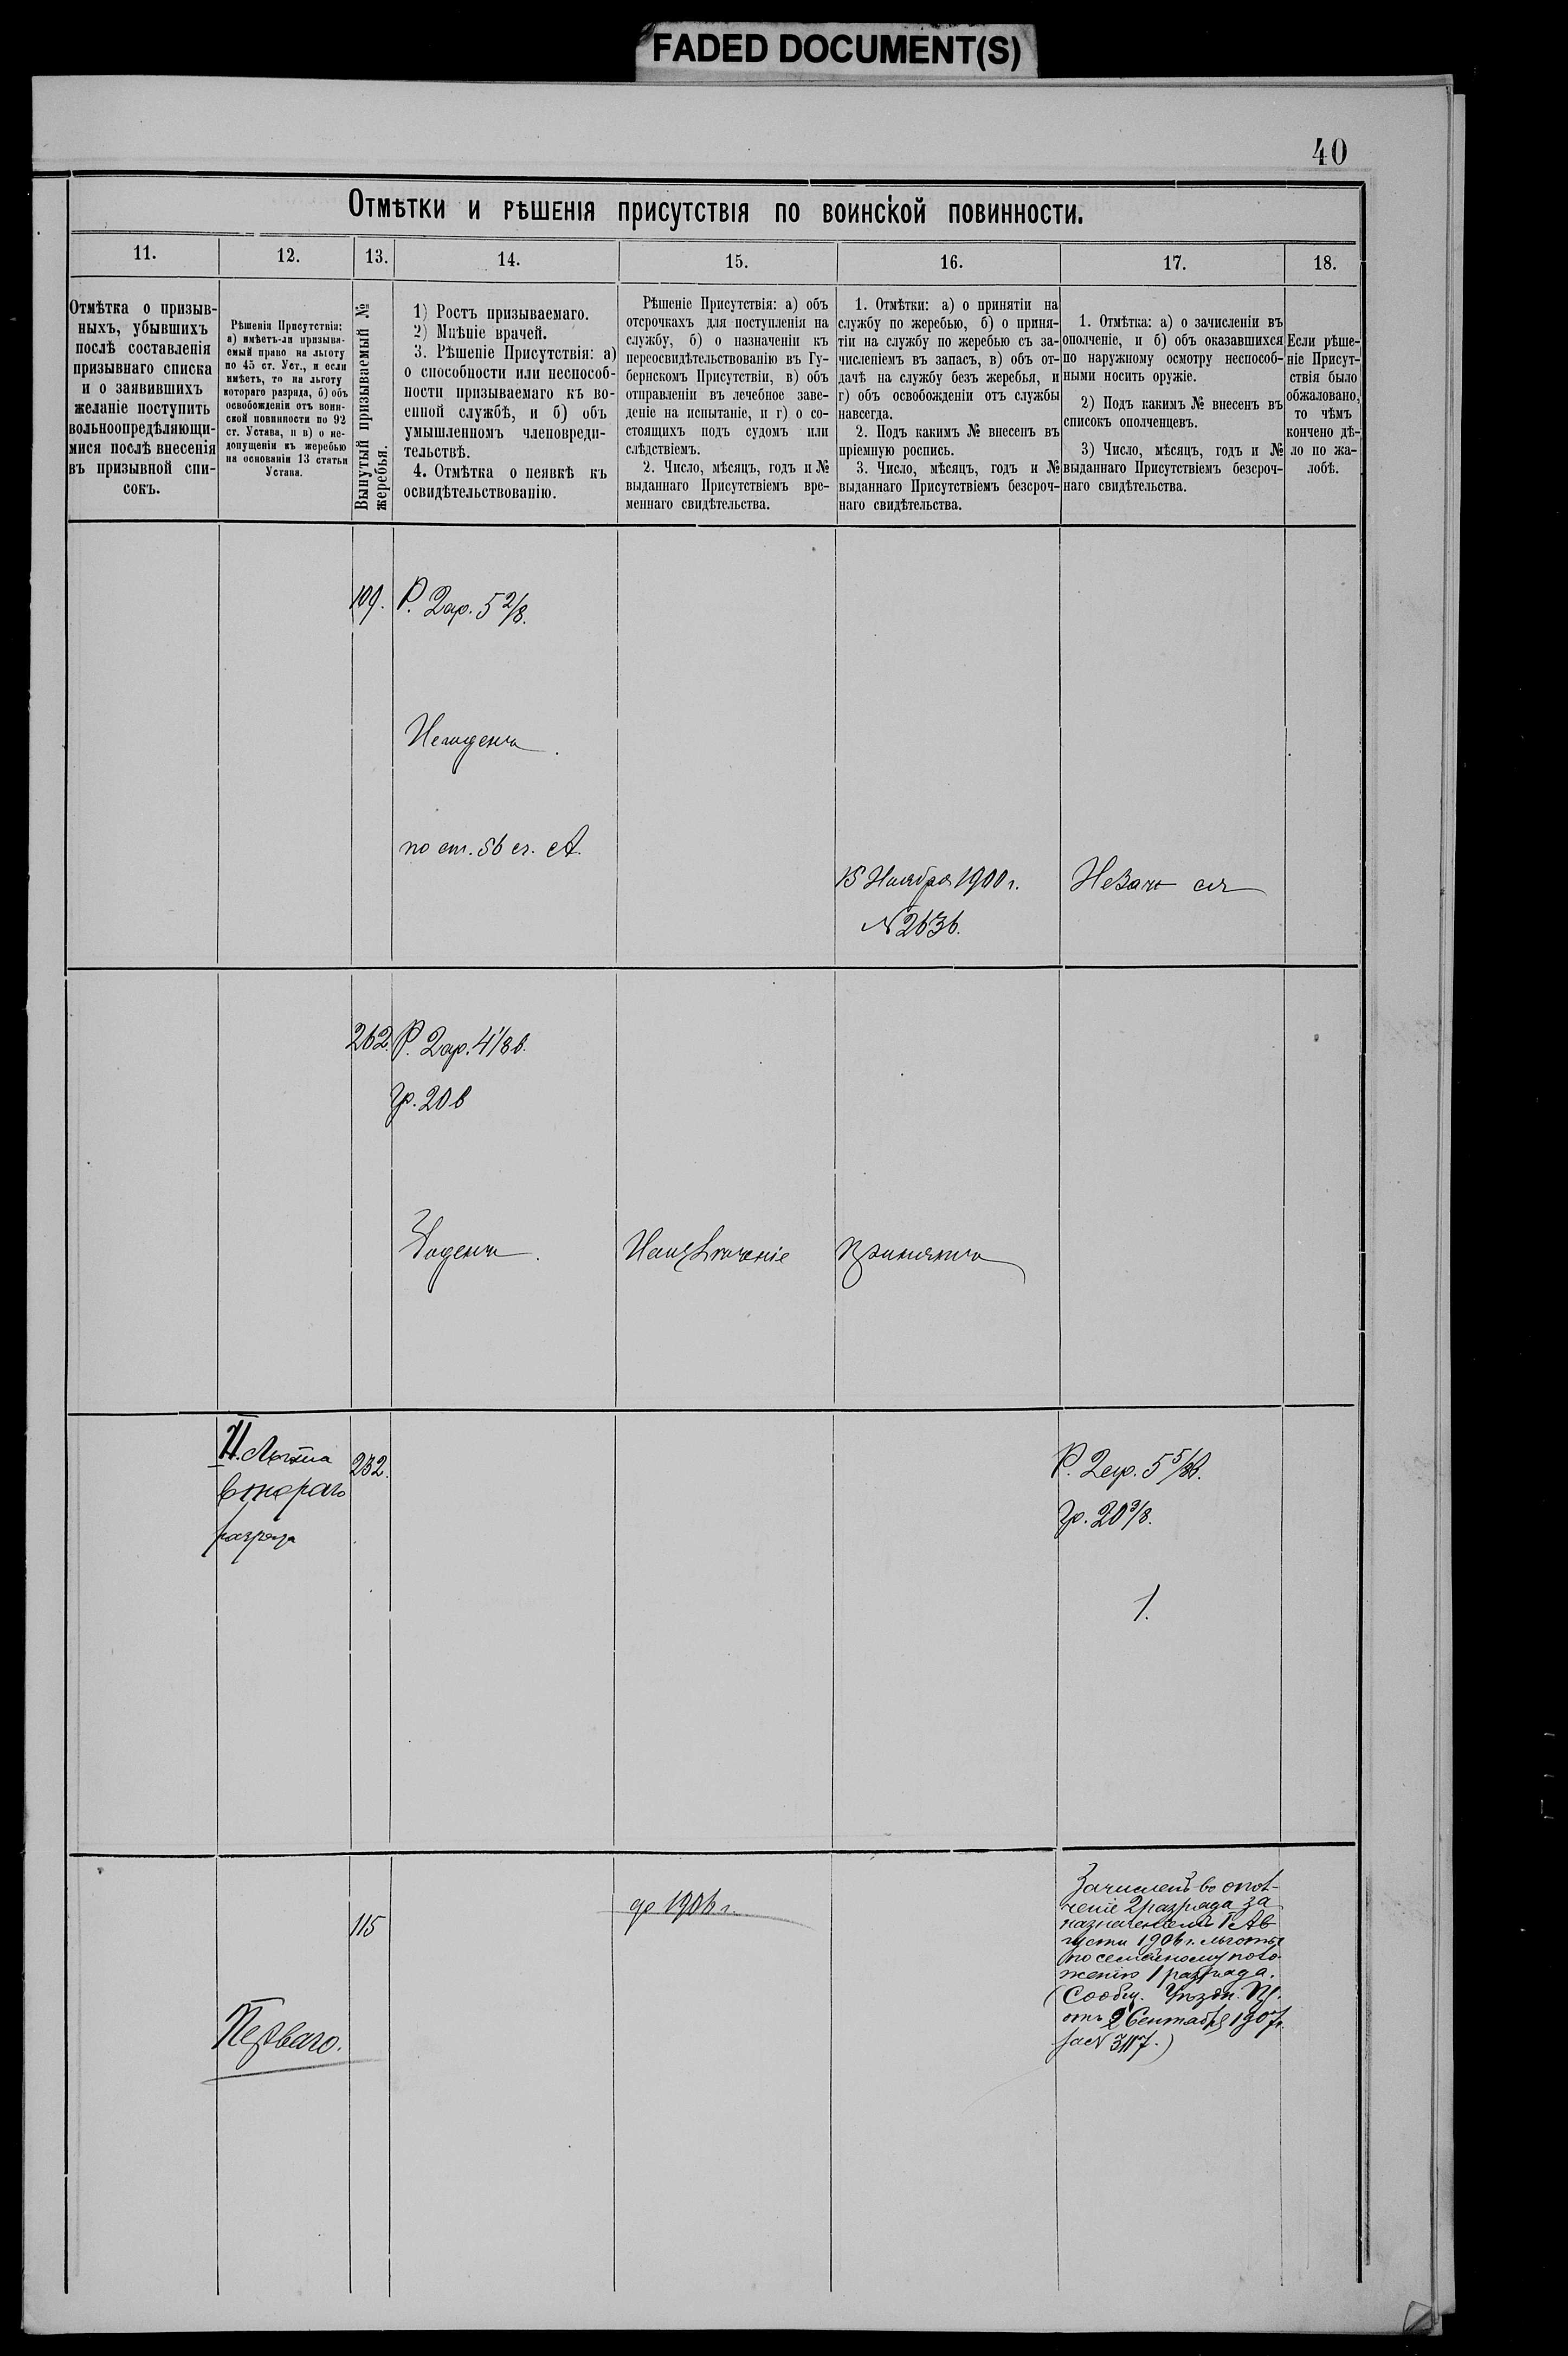 FADED DOCUMENT(S)
40
Отмѣтки и рѣшенія присутствія по воинской повинности.
11.
12.
13.
14.
15.
16.
17.
18.
Отмѣтка о призыв-
ныхъ, убывшихъ
послѣ составленія
призывнаго списка
и о заявившихъ
желаніе поступить
вольноопредѣляющи-
мися послѣ внесенія
въ призывной спи-
сокъ.
Рѣшенія Присутствія:
а) имѣетъ-ли призыва-
емый право на льготу
по 45 ст. Уст., и если
имѣетъ, то на льготу
котораго разряда, б) объ
освобожденіи отъ воин-
ской повинности по 92
ст. Устава, и в) о не-
допущеніи къ жеребью
на основаніи 13 статьи
Устава.
Вынутый призываемый №
жеребья.
1) Ростъ призываемаго.
2) Мнѣніе врачей.
3. Рѣшеніе Присутствія: а)
о способности или неспособ-
ности призываемаго къ во-
енной службѣ, и б) объ
умышленномъ членовреди-
тельствѣ.
4. Отмѣтка о неявкѣ къ
освидѣтельствованію.
Рѣшеніе Присутствія: а) объ
отсрочкахъ для поступленія на
службу, б) о назначеніи къ
переосвидѣтельствованію въ Гу-
бернскомъ Присутствіи, в) объ
отправленіи въ лечебное заве-
деніе на испытаніе, и г) о со-
стоящихъ подъ судомъ или
слѣдствіемъ.
2. Число, мѣсяцъ, годъ и №
выданнаго Присутствіемъ вре-
меннаго свидѣтельства.
1. Отмѣтки: а) о принятіи на
службу по жеребью, б) о приня-
тіи на службу по жеребью съ за-
численіемъ въ запасъ, в) объ от-
дачѣ на службу безъ жеребья, и
г) объ освобожденіи отъ службы
навсегда.
2. Подъ какимъ № внесенъ въ
пріемную роспись.
3. Число, мѣсяцъ, годъ и №
выданнаго Присутствіемъ безсроч-
наго свидѣтельства.
1. Отмѣтка: а) о зачисленіи въ
ополченіе, и б) объ оказавшихся
по наружному осмотру неспособ-
ными носить оружіе.
2) Подъ какимъ № внесенъ въ
списокъ ополченцевъ.
3) Число, мѣсяцъ, годъ и №
выданнаго Присутствіемъ безсроч-
наго свидѣтельства.
Если рѣше-
ніе Присут-
ствія было
обжаловано,
то чѣмъ
кончено дѣ-
ло по жа-
лобѣ.
109.
Р. 2ар. 5 2/8.
Негоденъ.
по ст. 56 л. А.
15 Ноября 1900 г.
№ 2636.
262.
Р. 2ар. 4 1/8 в.
гр. 20 в
Годенъ.
принятъ
II. Льгота
втораго
разряда
232.
Р. 2ар. 5 5/8 в.
гр. 20 3/8.
1.
115
Перваго.
до 1906 г.
Зачисленъ во опол-
ченіе 2 разряда за
назначеніемъ 1 Ав
густа 1906 г. льготы
по семейному поло-
женію 1 разряда.
(Сообщ. Уѣздн. Пр.
отъ 2 Сентября 1907 г.
за № 3117.)